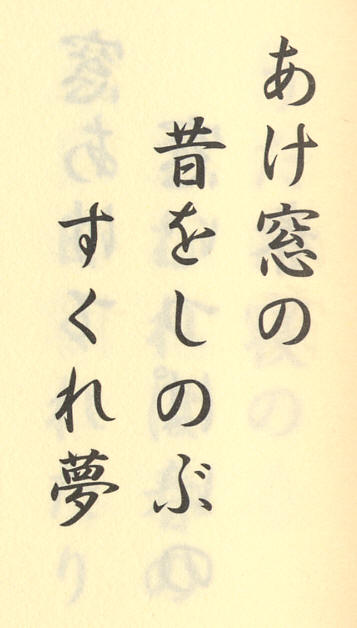 あけ窓の
昔をしのぶ
すくれ夢